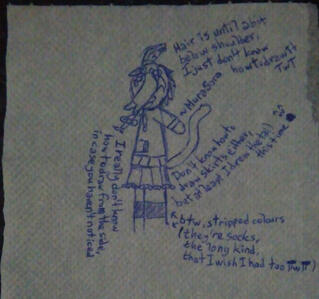 Hair is until a bit
below shoulder,
I just don't know
how to draw it
TwT
~MuraSora
Don't know how to
draw skirts either,
but at least I drew the tail
this time
btw, stripped colours
(they're socks,
the long kind,
that I wish I had too TwT)
I really don't know
how to draw from the side,
in case you haven't noticed